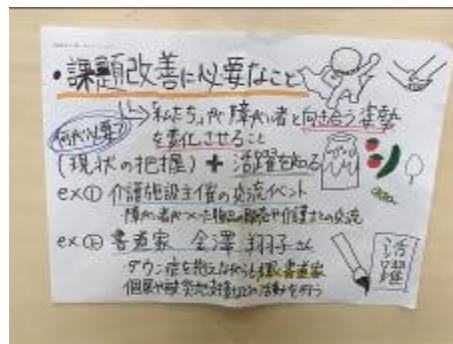 ・課題改善に必要なこと
何が必要？
私たちが障がい者と向き合う姿勢
を変化させること
(現状の把握) + 活躍を知る
ex① 介護施設主催の交流イベント
障がい者がつくった物品の販売や介護士との交流
ex② 書道家 金澤翔子さん
ダウン症を抱えながらも 書道家
個展や被災地支援などの活動を行う
活躍